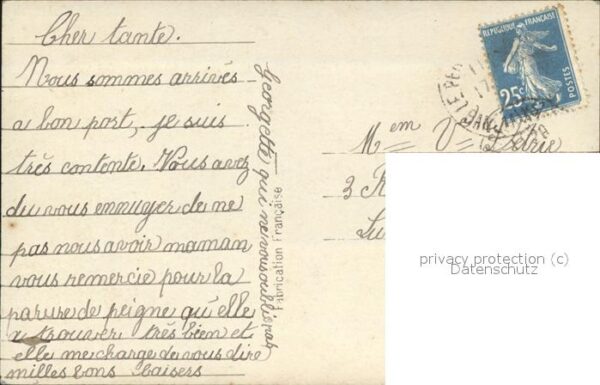 Cher tante.
Nous sommes arrivés
a bon port, je suis
très contente. Vous avez
du vous ennuyer de ne
pas nous avoir maman
vous remercie pour la
parure de peigne qu'elle
a trouver très bien et
elle me charge de vous dire
milles bons baisers
Georgette qui ne vous oublie pas
Fabrication Française
REPUBLIQUE FRANÇAISE
25c
POSTES
LE PE
Mem V=
3 R
Lu
privacy protection (c)
Datenschutz